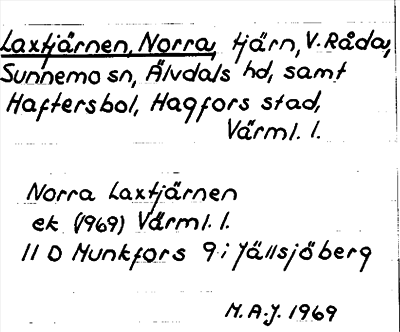 Laxtjärnen, Norra, tjärn, V. Råda,
Sunnemo sn, Älvdals hd, samt
Haftersbol, Hagfors stad,
Värml. l.
Norra Laxtjärnen
ek (1969) Värml. l.
11 D Munkfors 9 i Jällsjöberg
M.A.J. 1969